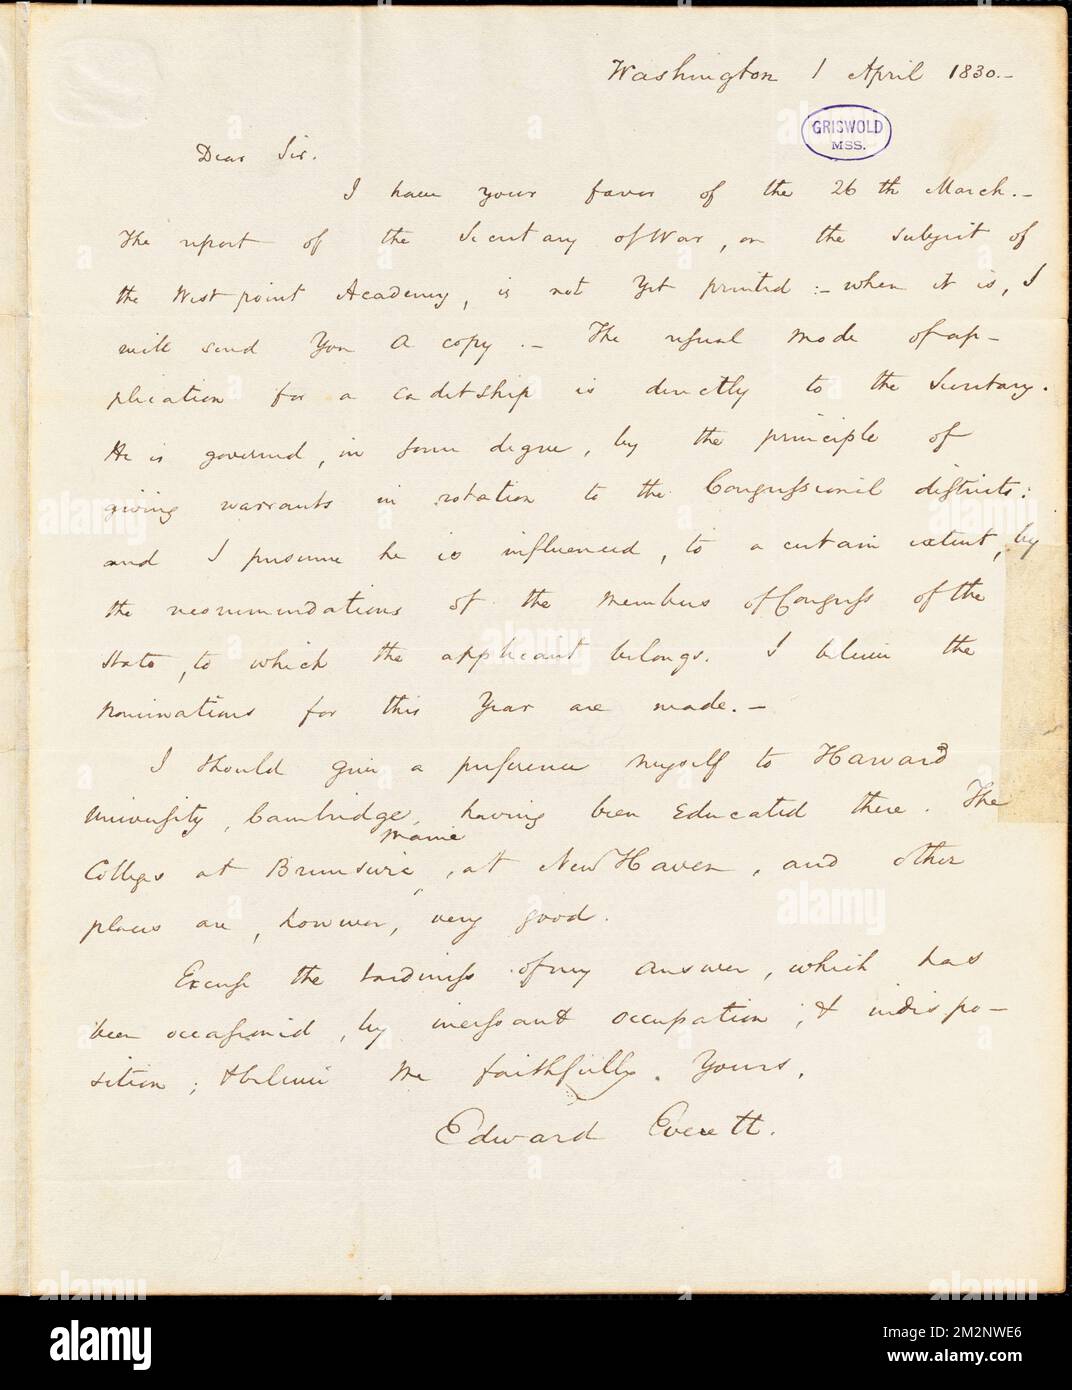 Washington 1 April 1830.-
GRISWOLD
MSS.
Dear Sir.
I have your favor of the 26th March.-
The report of the Secretary of War, on the subject of
the West point Academy, is not yet printed:- when it is, I
will send you a copy.- The usual mode of ap-
plication for a cadetship is directly to the Secretary.
He is governed, in some degree, by the principle of
giving warrants in rotation to the Congressional districts:
and I presume he is influenced, to a certain extent, by
the recommendations of the members of Congress of the
State, to which the applicant belongs. I believe the
nominations for this year are made.-
I should give a preference myself to Harvard
University, Cambridge, having been educated there. The
Colleges at Brunswic, Maine, at New Haven, and other
places are, however, very good.
Excuse the tardiness of my answer, which has
been occasioned, by incessant occupation, & indispo-
sition; & believe me faithfully Yours,
Edward Everett.
alamy
Image ID: 2M2NWE6
www.alamy.com